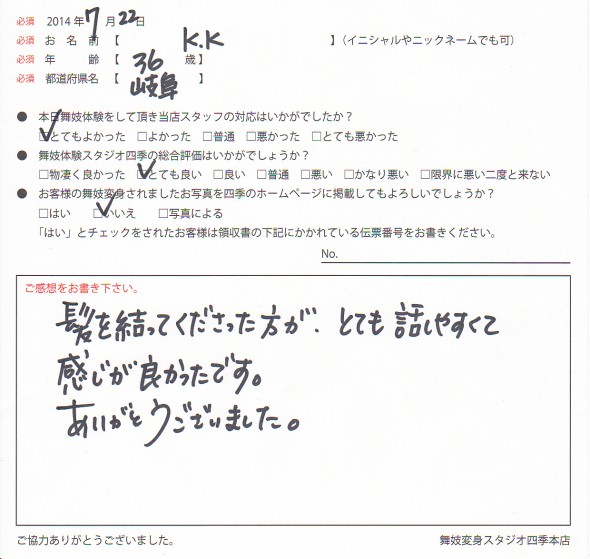 必須 2014年7月22日
必須 お名前【 K.K 】(イニシャルやニックネームでも可)
必須 年齢【 36 歳】
必須 都道府県名【 岐阜 】
● 本日舞妓体験をして頂き当店スタッフの対応はいかがでしたか？
☑とてもよかった □よかった □普通 □悪かった □とても悪かった
● 舞妓体験スタジオ四季の総合評価はいかがでしょうか？
□物凄く良かった ☑とても良い □良い □普通 □悪い □かなり悪い □限界に悪い二度と来ない
● お客様の舞妓変身されましたお写真を四季のホームページに掲載してもよろしいでしょうか？
□はい ☑いいえ □写真による
「はい」とチェックをされたお客様は領収書の下記にかかれている伝票番号をお書きください。
No.
ご感想をお書き下さい。
髪を結ってくださった方が、とても話しやすくて
感じが良かったです。
ありがとうございました。
ご協力ありがとうございました。
舞妓変身スタジオ四季本店